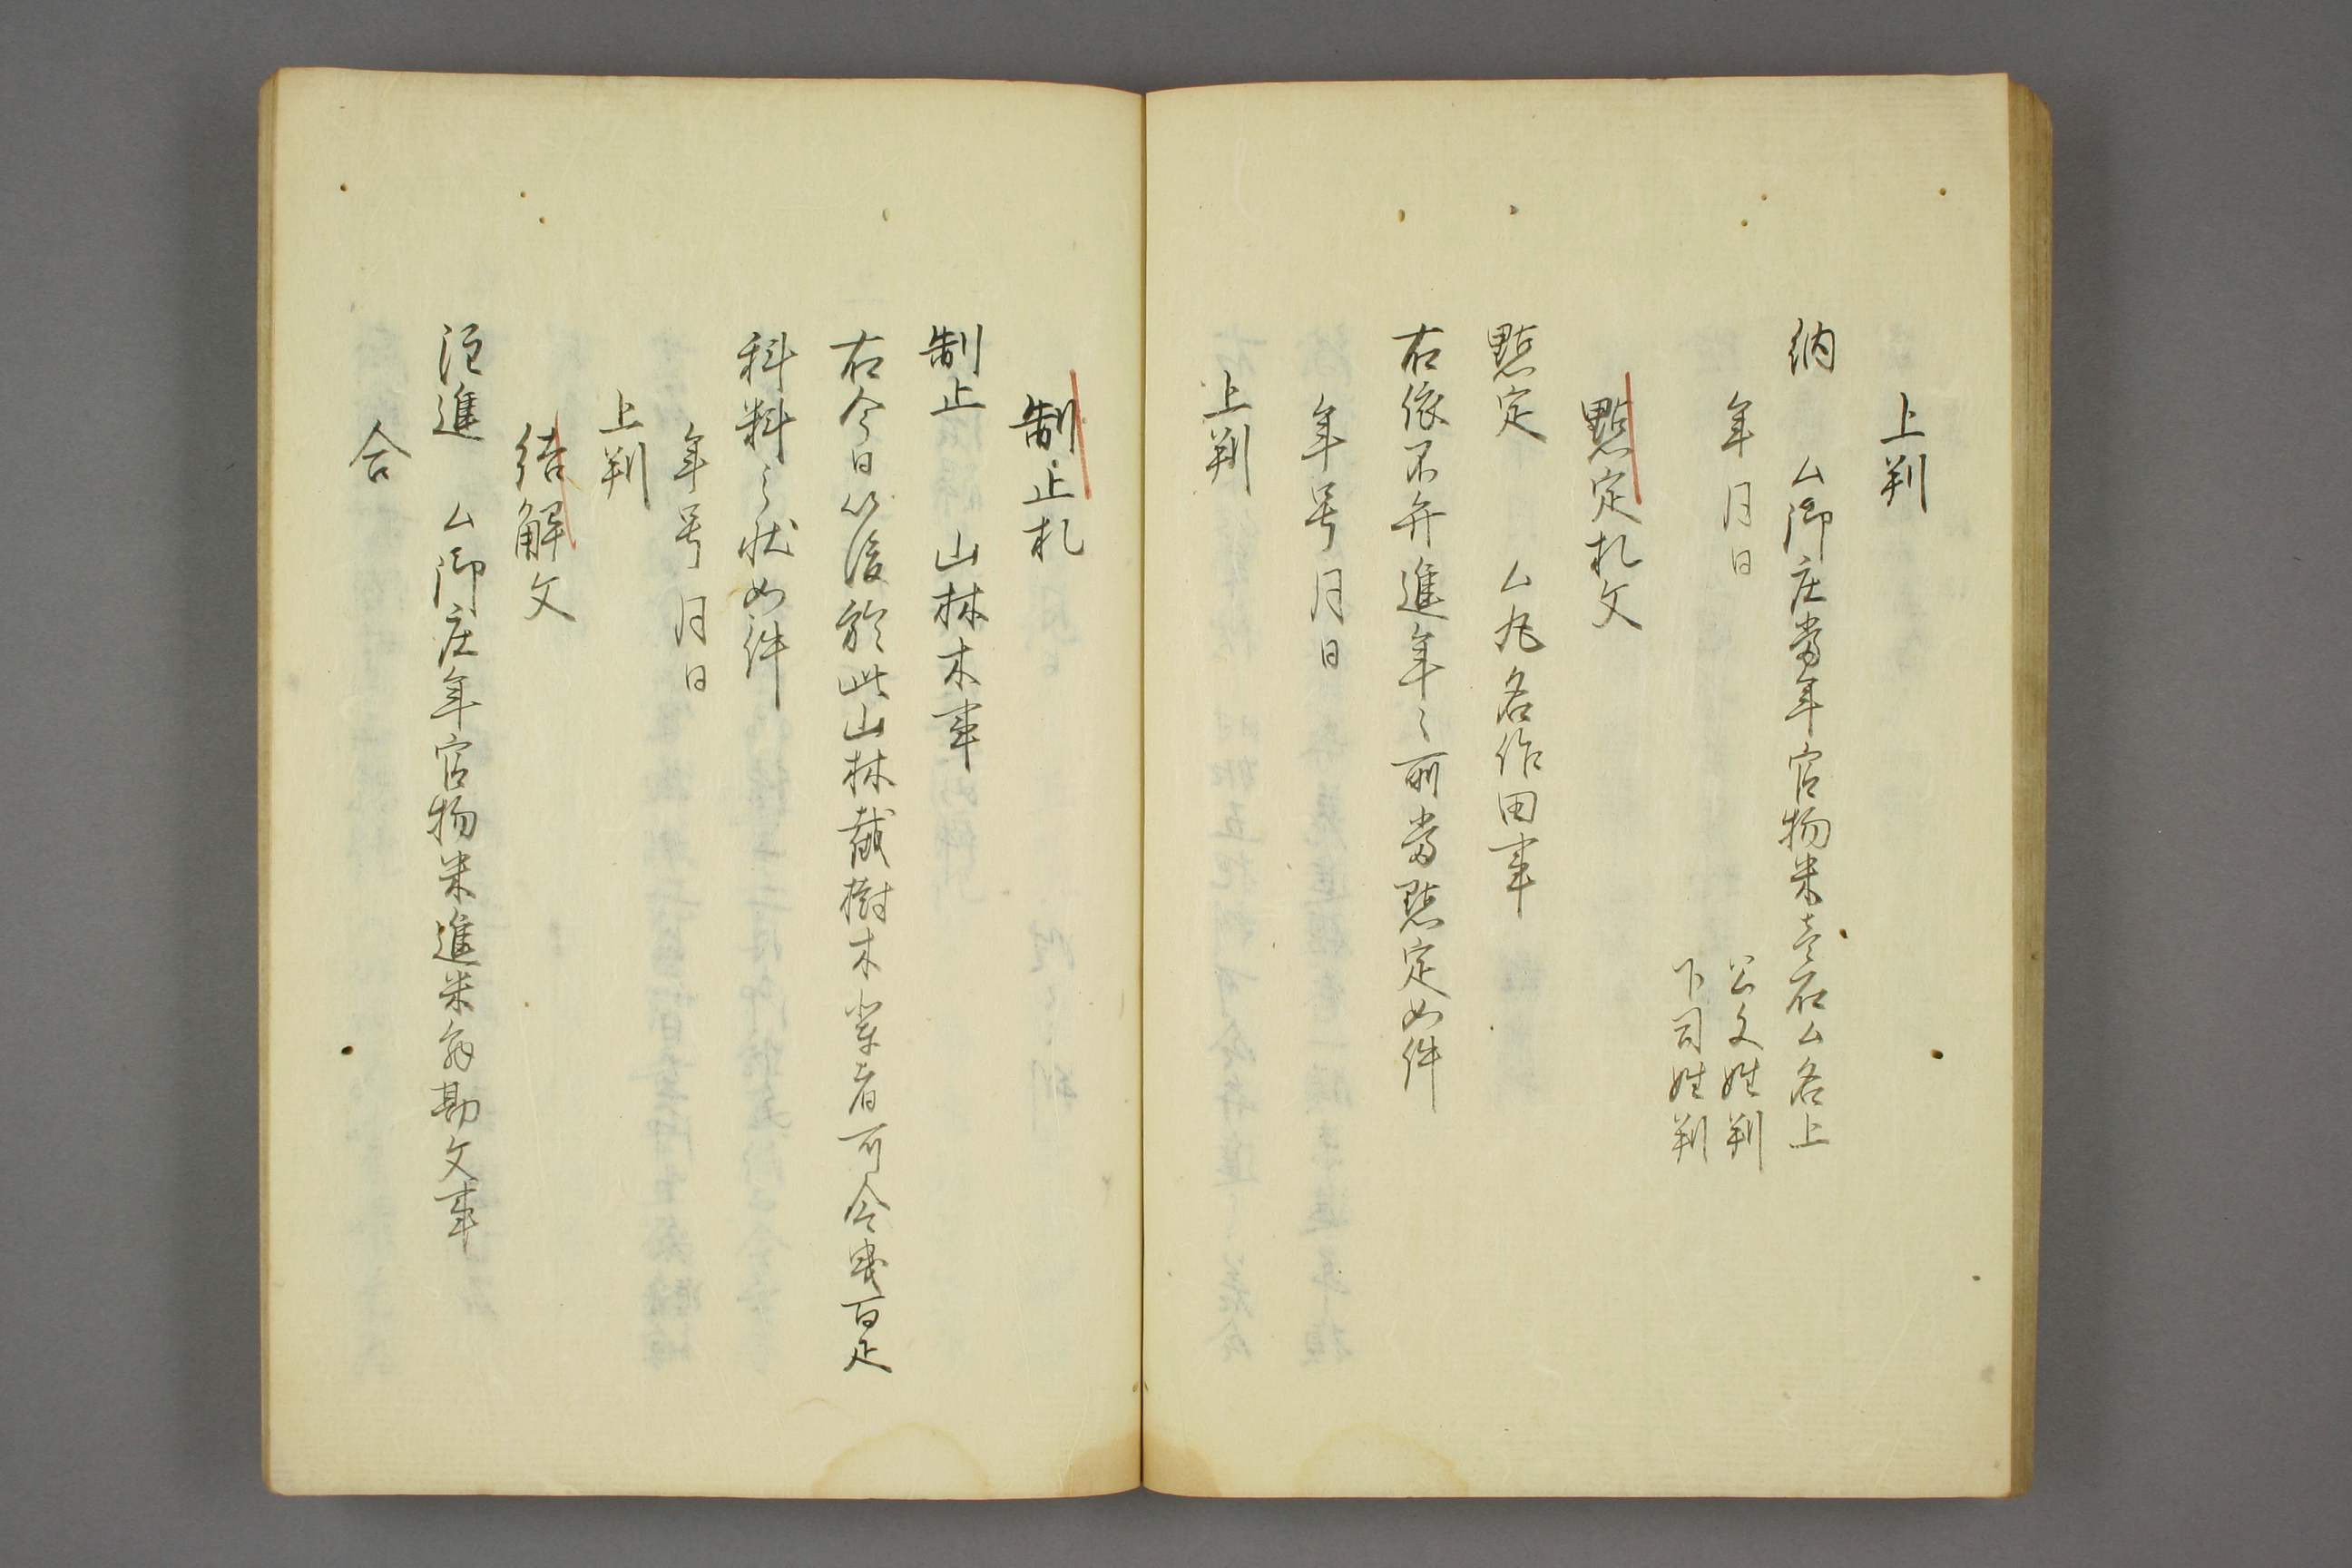 上判
納　ム御庄當年官物米壹石ム名上
年月日
公文姓判
下司姓判
點定札文
點定　ム丸名作田事
右依不弁進年々所當點定如件
年号月日
上判
制止札
制止　山林木事
右今日以後於此山林截樹木輩者可令曳百疋
科料之状如件
年号月日
上判
結解文
注進　ム御庄年官物米進米勘文事
合